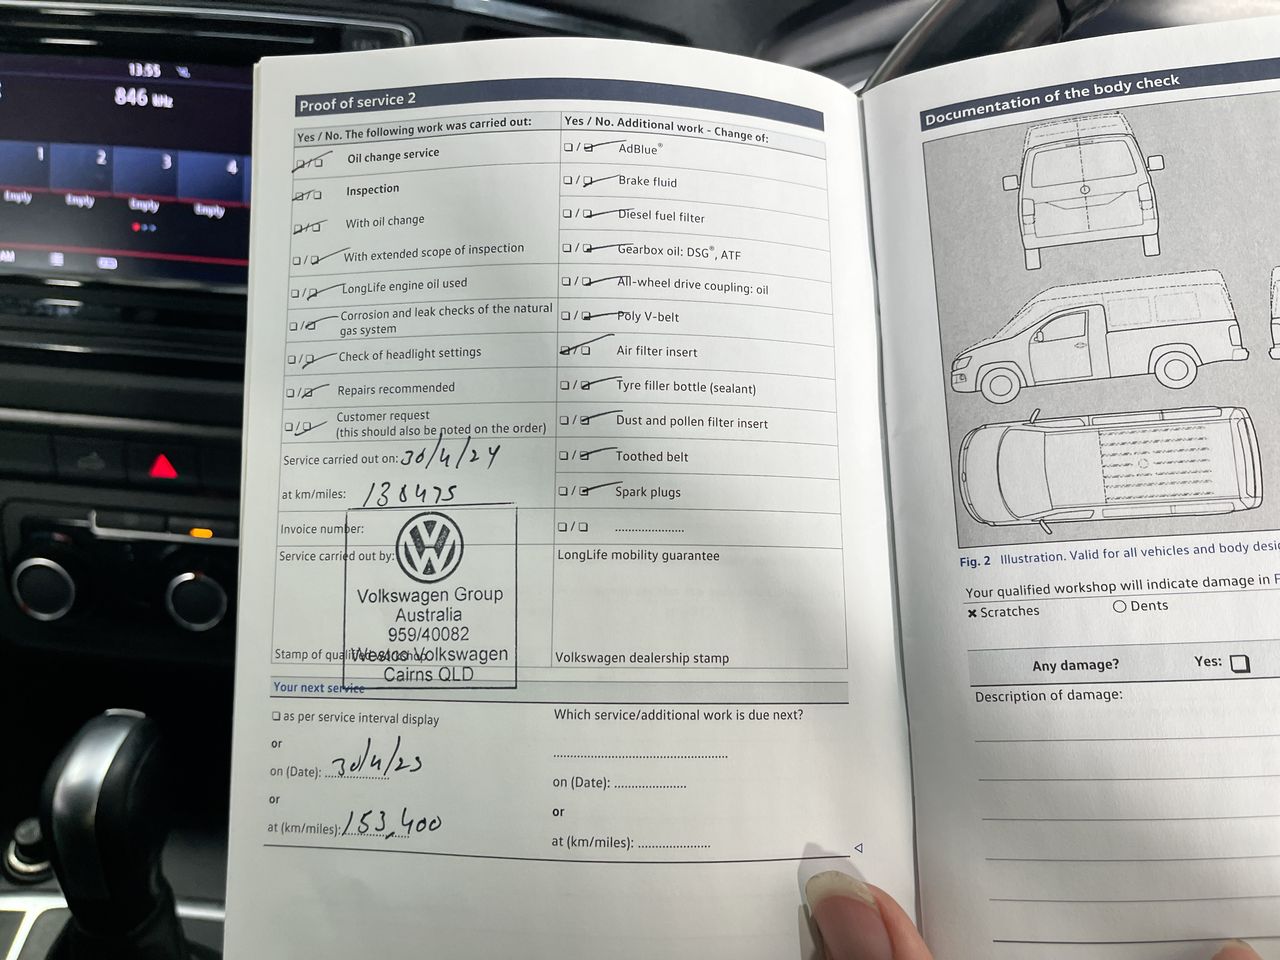 13:55
846 kHz
1 2 3 4
Empty Empty Empty Empty
AM
Proof of service 2
Yes / No. The following work was carried out:
Oil change service
Inspection
With oil change
With extended scope of inspection
LongLife engine oil used
Corrosion and leak checks of the natural
gas system
Check of headlight settings
Repairs recommended
Customer request
(this should also be noted on the order)
Service carried out on: 30/4/24
at km/miles: 138475
Invoice number:
Service carried out by:
Volkswagen Group
Australia
959/40082
Westco Volkswagen
Cairns QLD
Stamp of qualified workshop
Yes / No. Additional work - Change of:
AdBlue®
Brake fluid
Diesel fuel filter
Gearbox oil: DSG®, ATF
All-wheel drive coupling: oil
Poly V-belt
Air filter insert
Tyre filler bottle (sealant)
Dust and pollen filter insert
Toothed belt
Spark plugs
LongLife mobility guarantee
Volkswagen dealership stamp
Your next service
as per service interval display
or
on (Date): 30/4/25
or
at (km/miles): 153,400
Which service/additional work is due next?
on (Date):
or
at (km/miles):
Documentation of the body check
Fig. 2 Illustration. Valid for all vehicles and body
Your qualified workshop will indicate damage in
Scratches Dents
Any damage? Yes:
Description of damage: